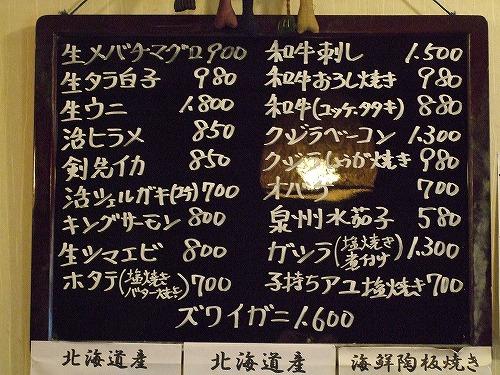 生メバチマグロ 900
生タラ白子 980
生ウニ 1.800
活ヒラメ 850
剣先イカ 850
活ツェルガキ(2ケ) 700
キングサーモン 800
生ツマエビ 800
ホタテ(塩焼き バター焼き) 700
和牛刺し 1.500
和牛おろし焼き 980
和牛(ユッケ・タタキ) 880
クジラベーコン 1.300
クジラしょうが焼き 980
オバケ 700
泉州水茄子 580
ガシラ(塩焼き 煮付け) 1.300
子持ちアユ塩焼き 700
ズワイガニ 1.600
北海道産
北海道産
海鮮陶板焼き